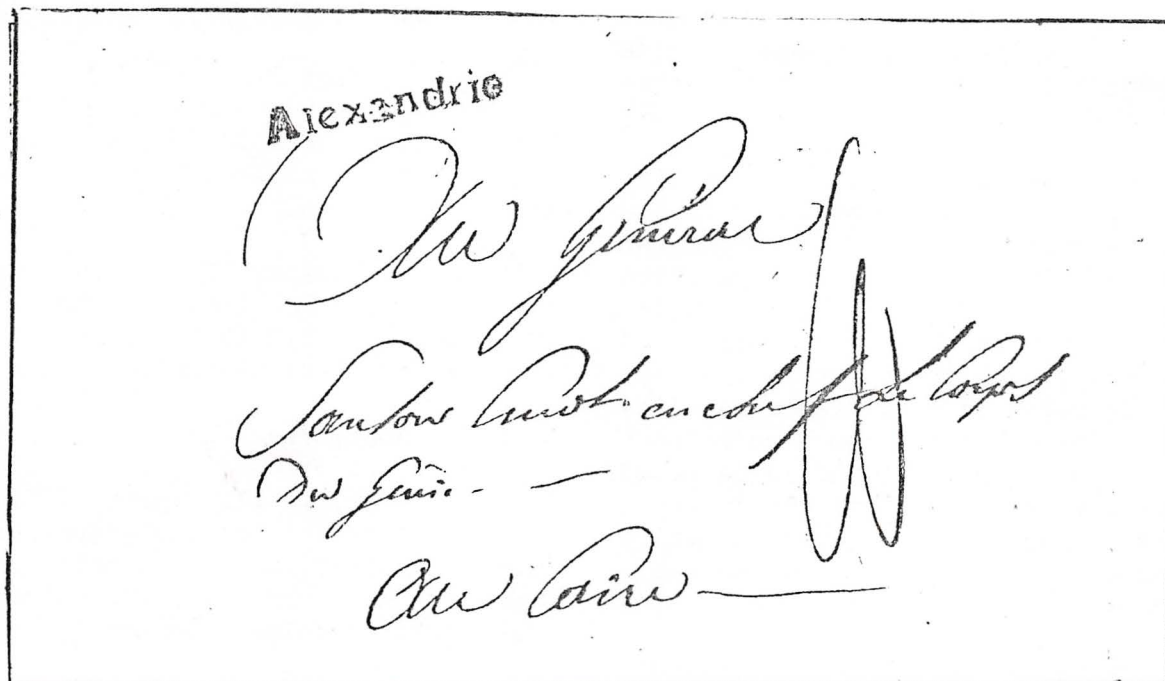 Alexandrie
Au Général
Sanson en chef Corps
Du Génie. —
Au Caire —